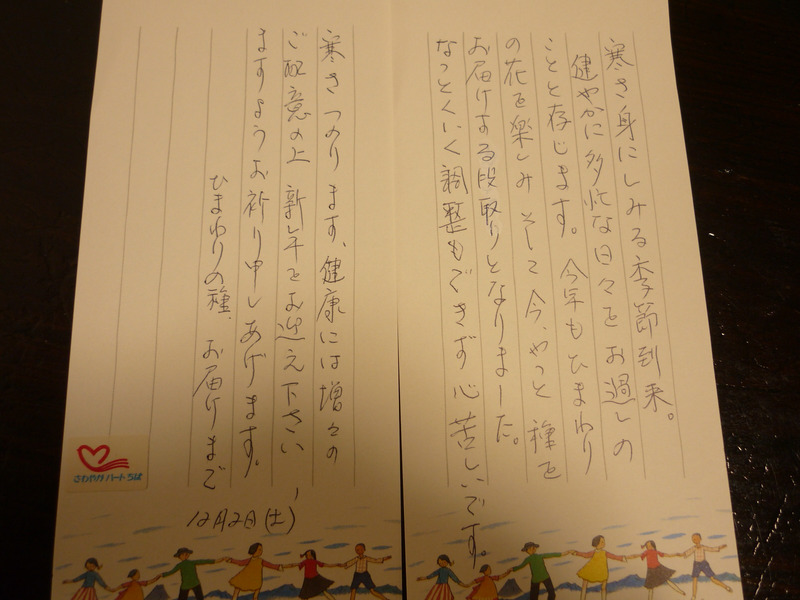 寒さ身にしみる季節到来。
健やかに多忙な日々をお過しの
ことと存じます。今年もひまわり
の花を楽しみそして今、やっと種を
お届けする段取りとなりました。
なっとくいく調整もできず心苦しいです。
寒さつのります、健康には増々の
ご配意の上 新しい年をお迎え下さい
ますようお祈り申しあげます。
ひまわりの種、お届けまで
12月2日(土)
さわやかハートちば